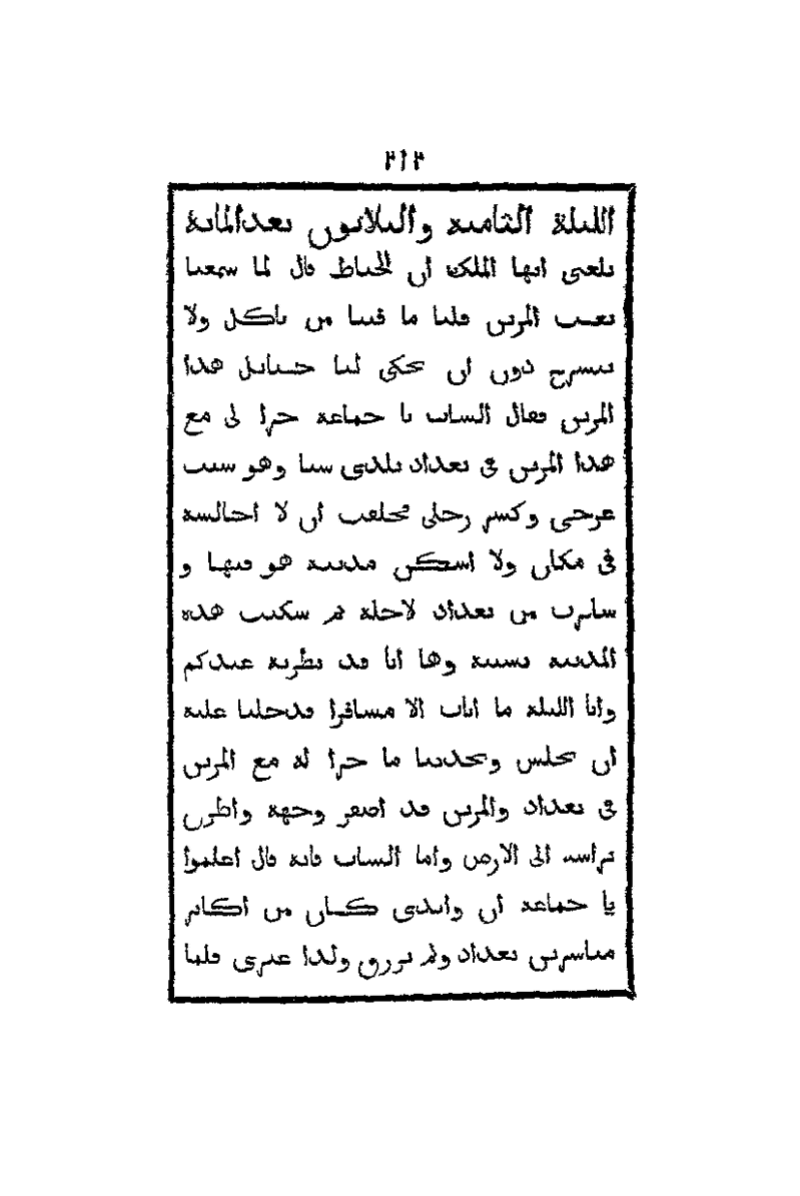 ٣١٣
الليلة الثامنة والثلاثون بعد المائة
بلغنى ايها الملك ان الخياط قال لما سمعنا
تعجب المزين قلنا ما فينا من ياكل ولا
ينشرح دون ان تحكى لنا خبايل هذا
المزين فقال الشاب يا جماعة جرا لى مع
هذا المزين فى بغداد بلدى شيا وهو سبب
عرجى وكسر رجلى فحلفت ان لا اجالسه
فى مكان ولا اسكن مدينة هو فيها و
سافرت من بغداد لاجله ثم سكنت هذه
المدينة بسببه وها انا قد نظرته عندكم
وانا الليلة ما ابات الا مسافرا فدخلنا عليه
ان يجلس ويحدثنا ما جرا له مع المزين
فى بغداد والمزين قد اصفر وجهه واطرق
براسه الى الارض واما الشاب فانه قال اعلموا
يا جماعة ان والدى كان من اكابر
مياسرين بغداد ولم يرزق ولدا غيرى فلما